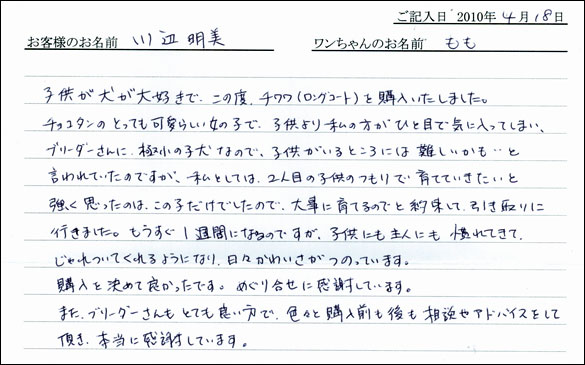 ご記入日 2010年4月18日
お客様のお名前 川辺 明美 ワンちゃんのお名前 もも
子供が犬が大好きで、この度、チワワ(ロングコート)を購入いたしました。
チョコタンのとっても可愛らしい女の子で、子供より私の方がひと目で気に入ってしまい、
ブリーダーさんに、極小の子犬なので、子供がいるところには難しいかも…と
言われていたのですが、私としては、2人目の子供のつもりで育てていきたいと
強く思ったのは、この子だけでしたので、大事に育てるのでと約束して、引き取りに
行きました。もうすぐ1週間になるのですが、子供にも主人にも慣れてきて、
じゃれついてくれるようになり、日々かわいさがつのっています。
購入を決めて良かったです。めぐり合せに感謝しています。
また、ブリーダーさんもとても良い方で、色々と購入前も後も相談やアドバイスをして
頂き、本当に感謝しています。